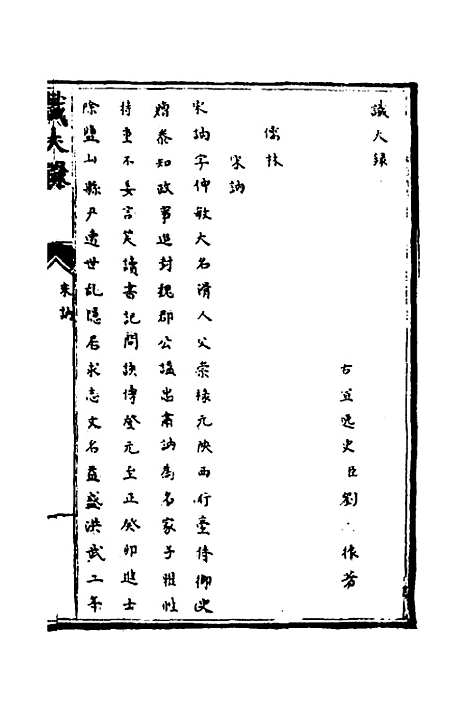 識大錄
古宣逸史臣劉振芳
儒林
宋訥
宋訥字仲敏大名滑人父崇祿元陜西行臺侍御史
贈泰知政事追封魏郡公諡出肅訥爲名家子雅性
持重不妄言笑讀書記問該博登元至正癸卯進士
除鹽山縣尹遭世亂隱居求志文名益盛洪武二年
識大錄
宋訥